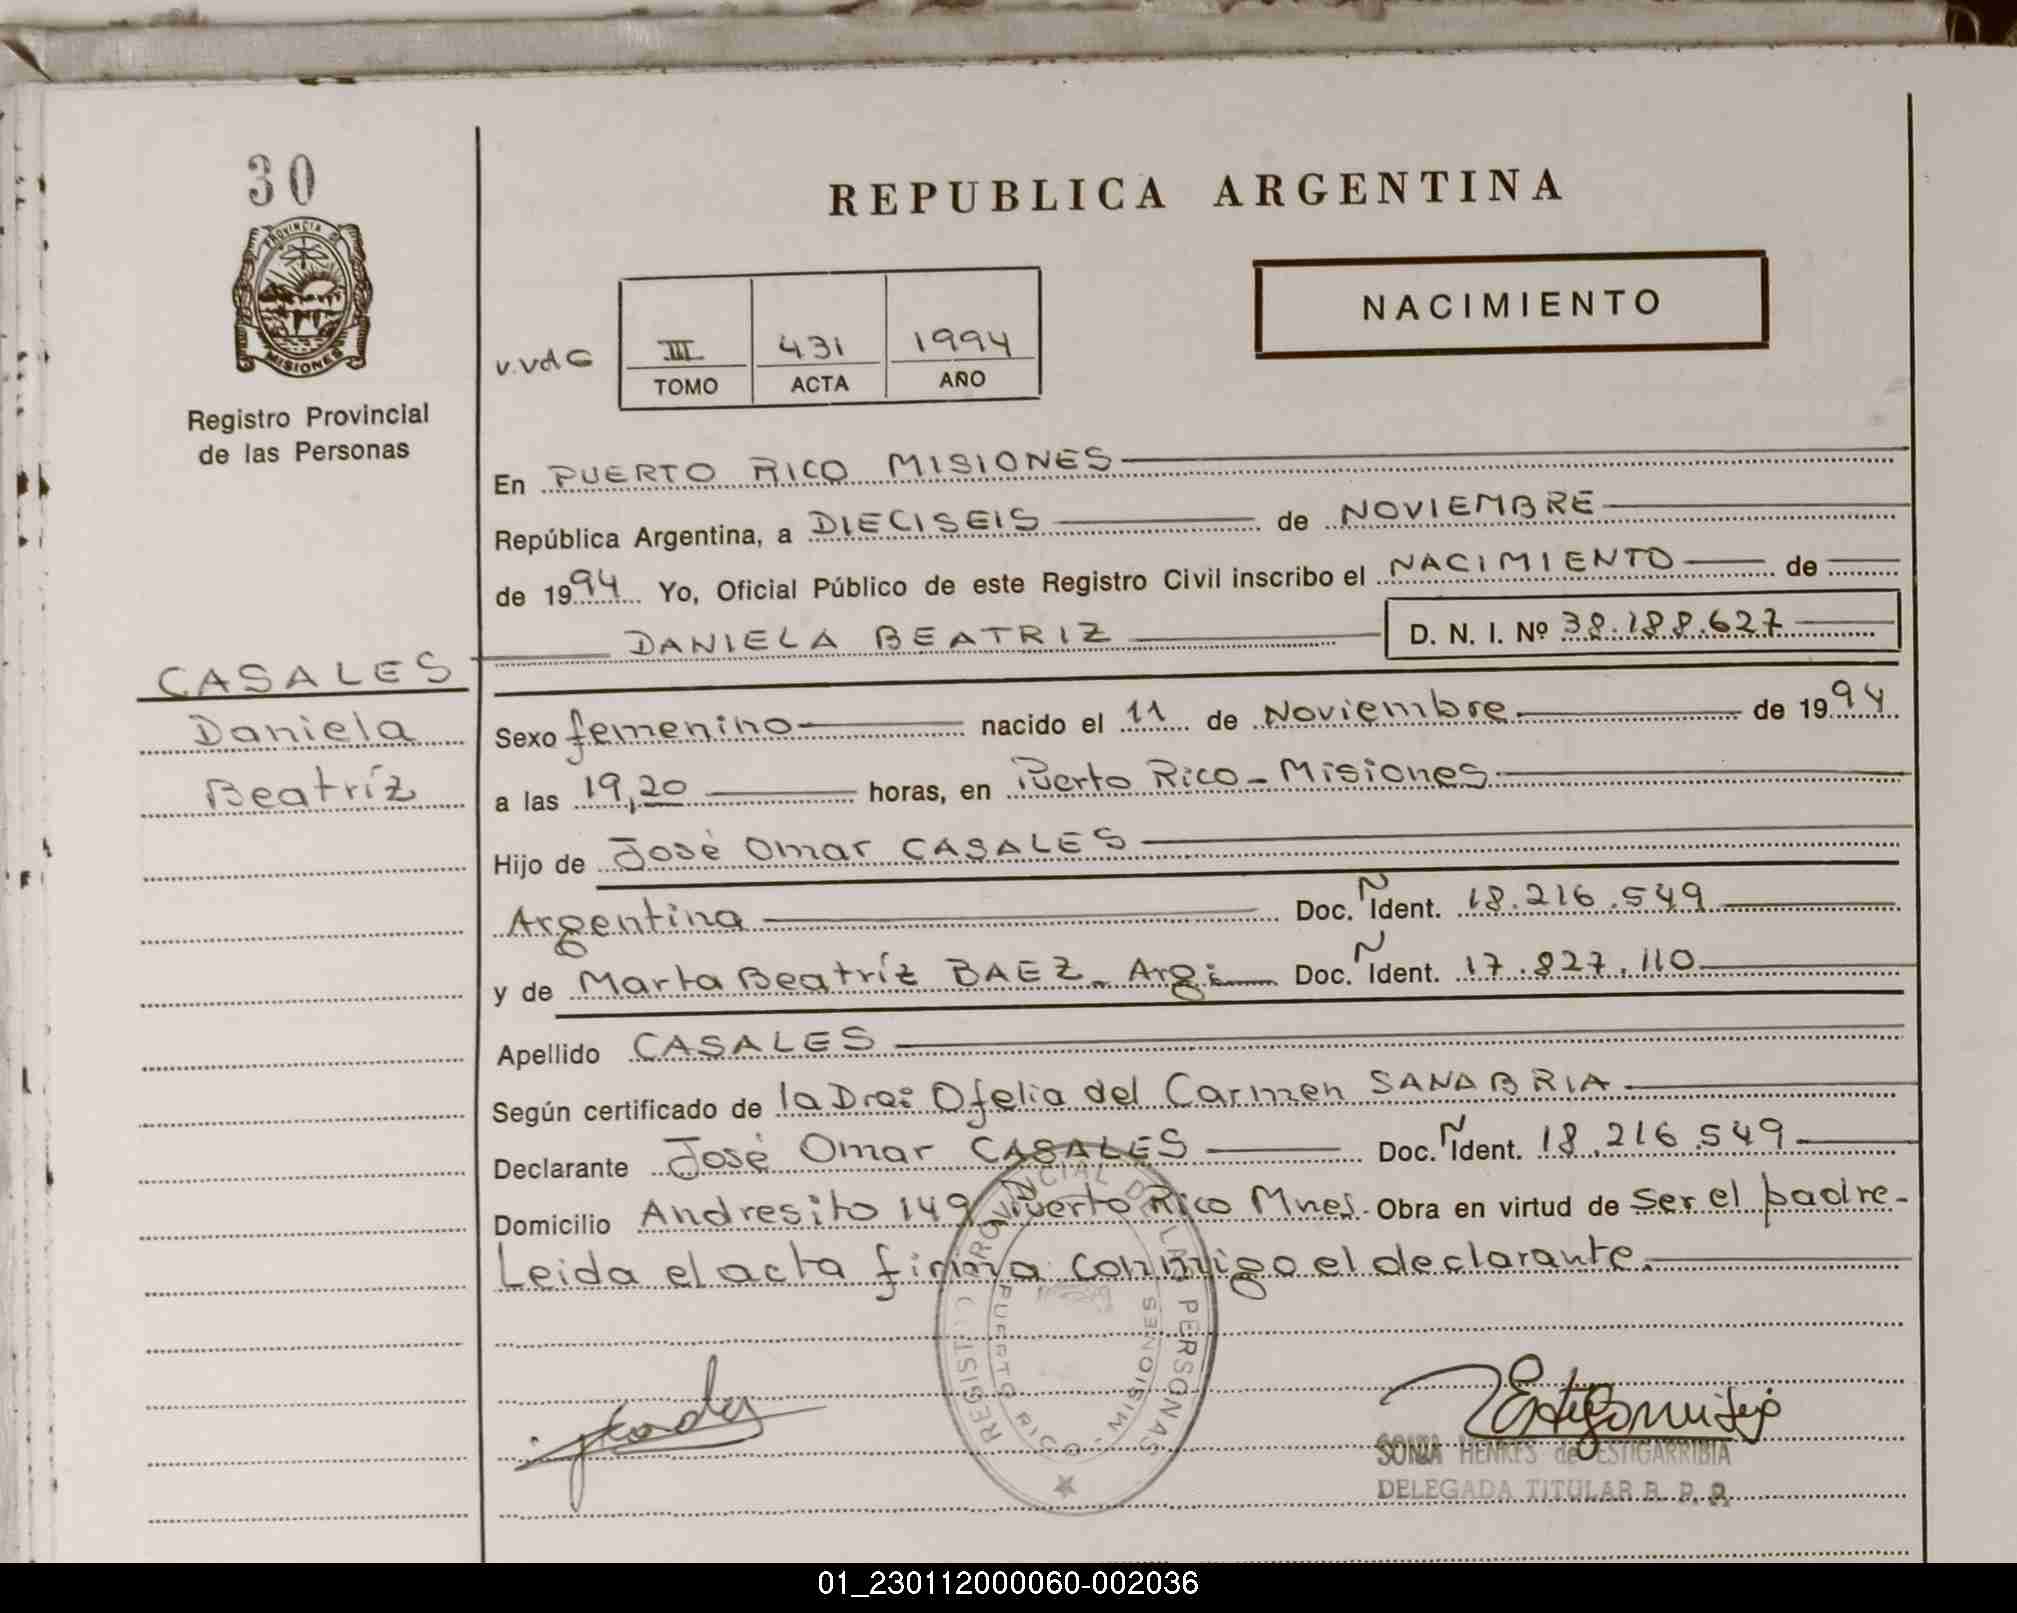 30
PROVINCIA DE
MISIONES
Registro Provincial
de las Personas
REPUBLICA ARGENTINA
NACIMIENTO
v.vdG III 431 1994
TOMO ACTA AÑO
En PUERTO RICO MISIONES
República Argentina, a DIECISEIS de NOVIEMBRE
de 1994 Yo, Oficial Público de este Registro Civil inscribo el NACIMIENTO de
DANIELA BEATRIZ D. N. I. Nº 38.188.627
CASALES
Daniela
Beatríz
Sexo femenino nacido el 11 de Noviembre de 1994
a las 19,20 horas, en Puerto Rico - Misiones
Hijo de José Omar CASALES
Argentina Doc. Ñ Ident. 18.216.549
y de Marta Beatríz BAEZ - Arg: Doc. Ñ Ident. 17.827.110
Apellido CASALES
Según certificado de la Dra: Ofelia del Carmen SANABRIA
Declarante José Omar CASALES Doc. Ñ Ident. 18.216.549
Domicilio Andresito 149 Puerto Rico Mnes. Obra en virtud de ser el padre -
Leida el acta firma conmigo el declarante.
REGISTRO PROVINCIAL DE LAS PERSONAS
PUERTO RICO - MISIONES
SONIA HENKES de ESTIGARRIBIA
DELEGADA TITULAR R. P. P.
01_230112000060-002036